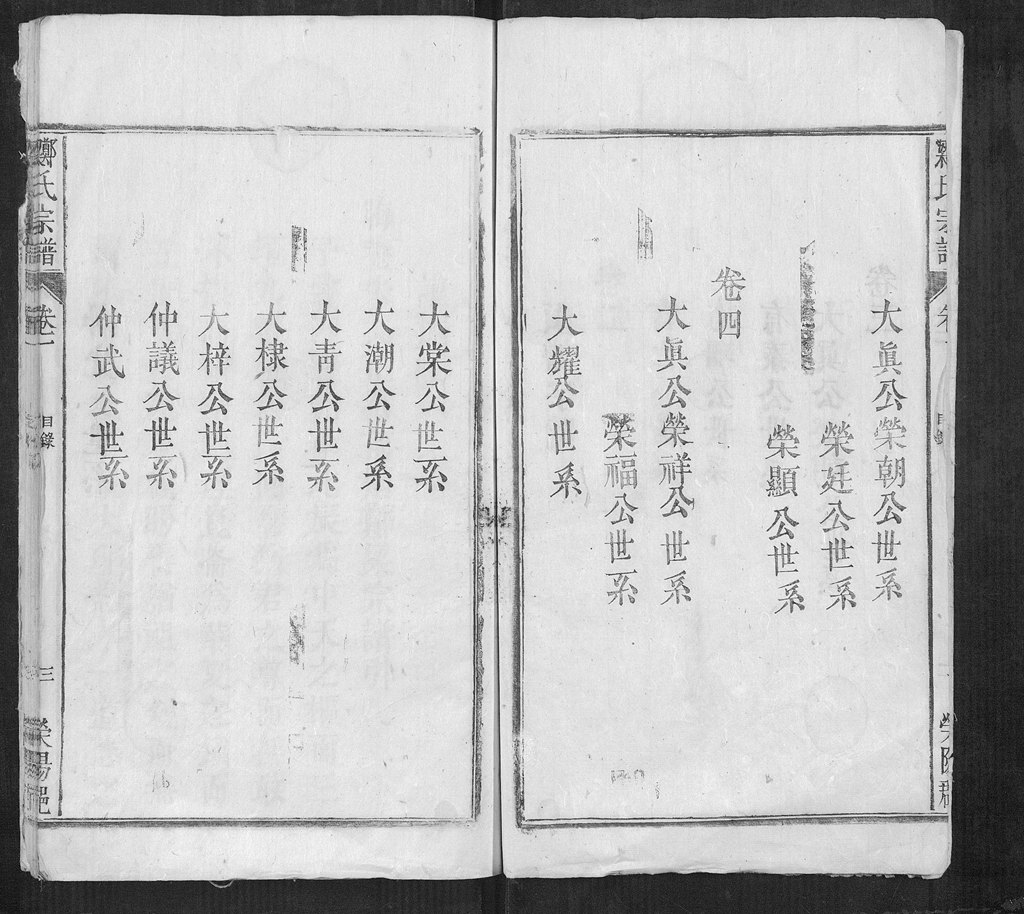 大眞公榮朝公世系
榮廷公世系
榮顯公世系
卷四
大眞公榮祥公世系
榮福公世系
大耀公世系
大棠公世系
大潮公世系
大靑公世系
大棣公世系
大梓公世系
仲議公世系
仲武公世系
鄭氏宗譜
卷一
目錄
三